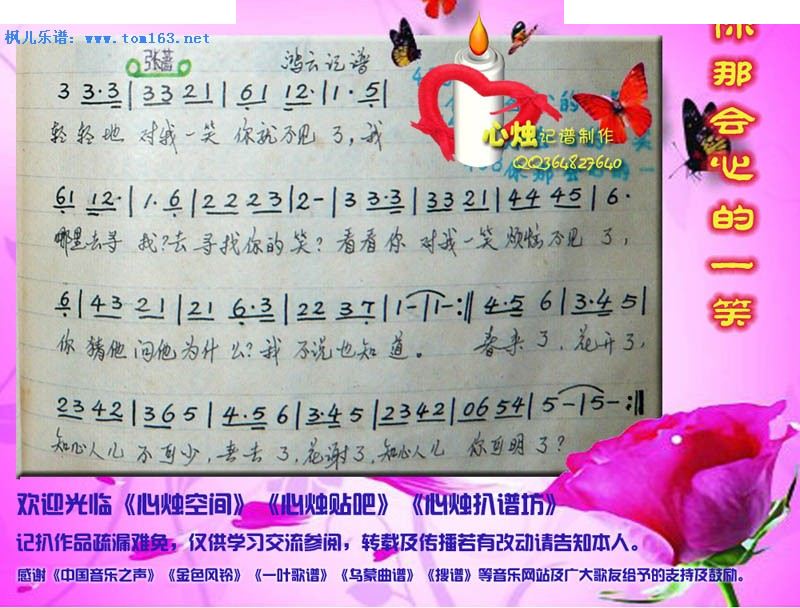 枫儿乐谱：www.tom163.net
你那会心的一笑
张蔷
鸿云记谱
心烛记谱制作
QQ364827640
3 3·3|33 21|61 12·|1·5|
轻轻地 对我一笑 你就不见了，我
61 12·|1·6|22 23|2-|3 3·3|33 21|44 45|6·
哪里去寻 我?去寻找你的笑? 看看你 对我一笑 烦恼不见了，
6|43 21|21 6·3|22 37|1-|1-:‖ 4·5 6|3·4 5|
你 猜他问他为什么?我 不说也知道。 春来了，花开了，
23 42|36 5|4·5 6|3·4 5|23 42|06 54|5-|5-:‖
知心人儿 不可少，春去了，花谢了，知心人儿 你可明了?
欢迎光临《心烛空间》《心烛贴吧》《心烛扒谱坊》
记扒作品疏漏难免，仅供学习交流参阅，转载及传播若有改动请告知本人。
感谢《中国音乐之声》《金色风铃》《一叶歌谱》《乌蒙曲谱》《搜谱》等音乐网站及广大歌友给予的支持及鼓励。